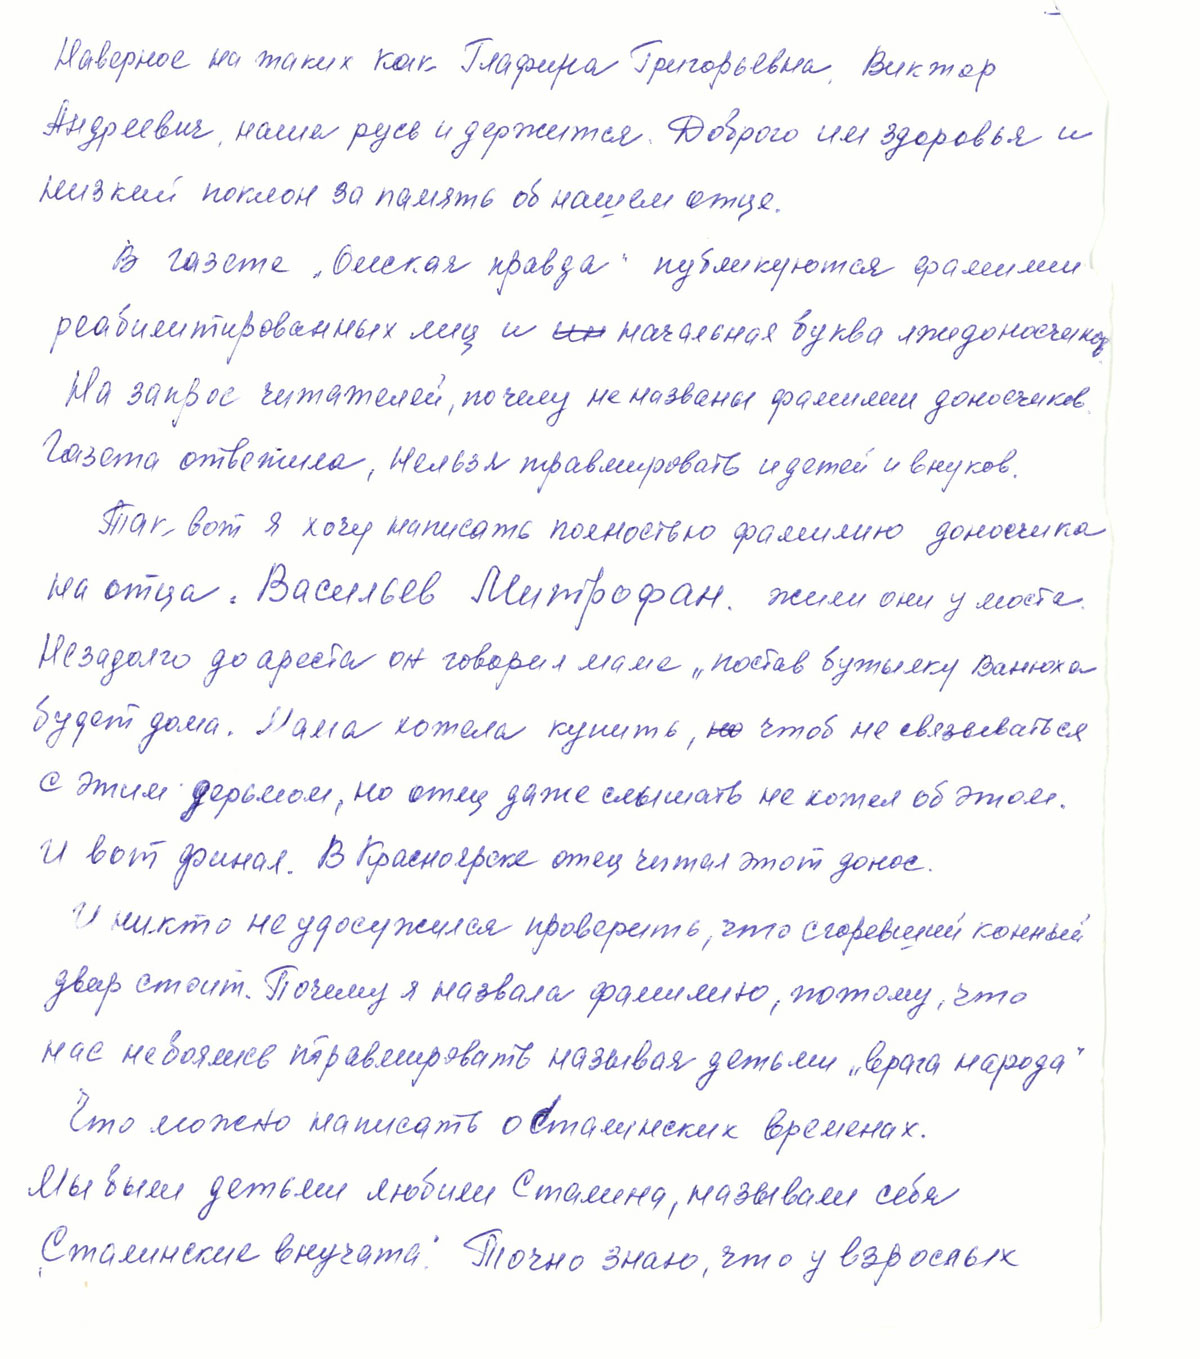 Наверное на таких как Глафира Григорьевна, Виктор
Андреевич, наша русь и держится. Доброго им здоровья и
низкий поклон за память об нашем отце.
В газете „Омская правда" публикуются фамилии
реабилитированных лиц и начальная буква лжедоносчиков.
На запрос читателей, почему не названы фамилии доносчиков.
Газета ответила, нельзя травмировать и детей и внуков.
Так вот я хочу написать полностью фамилию доносчика
на отца. Васильев Митрофан. жили они у моста.
Незадолго до ареста он говорил маме „постав бутылку Ванюха
будет дома. Мама хотела купить, чтоб не связываться
с этим дерьмом, но отец даже слышать не хотел об этом.
И вот финал. В Красноярске отец читал этот донос.
И никто не удосужился проверить, что сгоревший конный
двор стоит. Почему я назвала фамилию, потому, что
нас небоялись травмировать называя детьми „врага народа"
Что можно написать о Сталинских временах.
Мы были детьми любили Сталина, называли себя
„Сталинские внучата". Точно знаю, что у взрослых